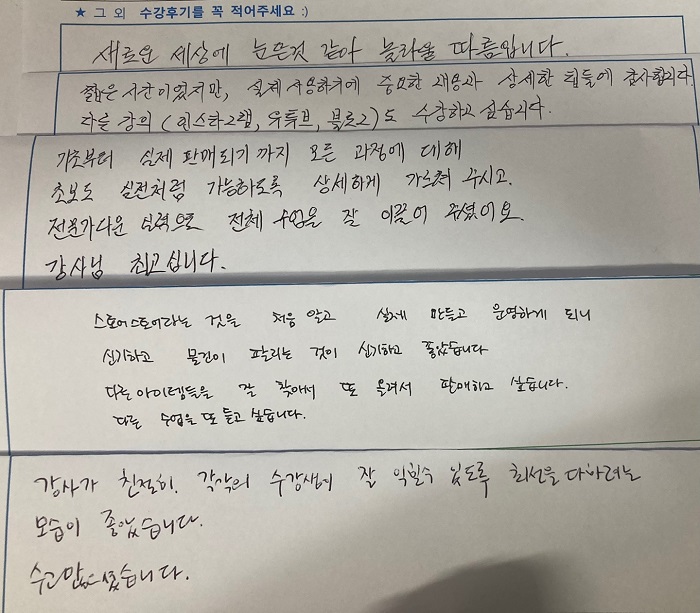 ★ 그 외 수강후기를 꼭 적어주세요 :)
새로운 세상에 눈뜬것 같아 놀라울 따름입니다.
짧은 시간이었지만, 실제 사용하기에 중요한 내용과 상세한 팁들에 감사합니다.
다른 강의 (인스타그램, 유튜브, 블로그)도 수강하고 싶습니다.
기초부터 실제 판매되기 까지 모든 과정에 대해
초보도 실전처럼 가능하도록 상세하게 가르쳐 주시고.
전문가다운 실력으로 전체 수업을 잘 이끌어 주셨어요.
강사님 최고십니다.
스토어스토어라는 것을 처음 알고 실제 만들고 운영하게 되니
신기하고 물건이 팔리는 것이 신기하고 좋았습니다
다른 아이템들을 잘 찾아서 또 올려서 판매하고 싶습니다.
다른 수업을 또 듣고 싶습니다.
강사가 친절히. 각각의 수강생이 잘 익힐수 있도록 최선을 다하려는
모습이 좋았습니다.
수고 많으셨습니다.